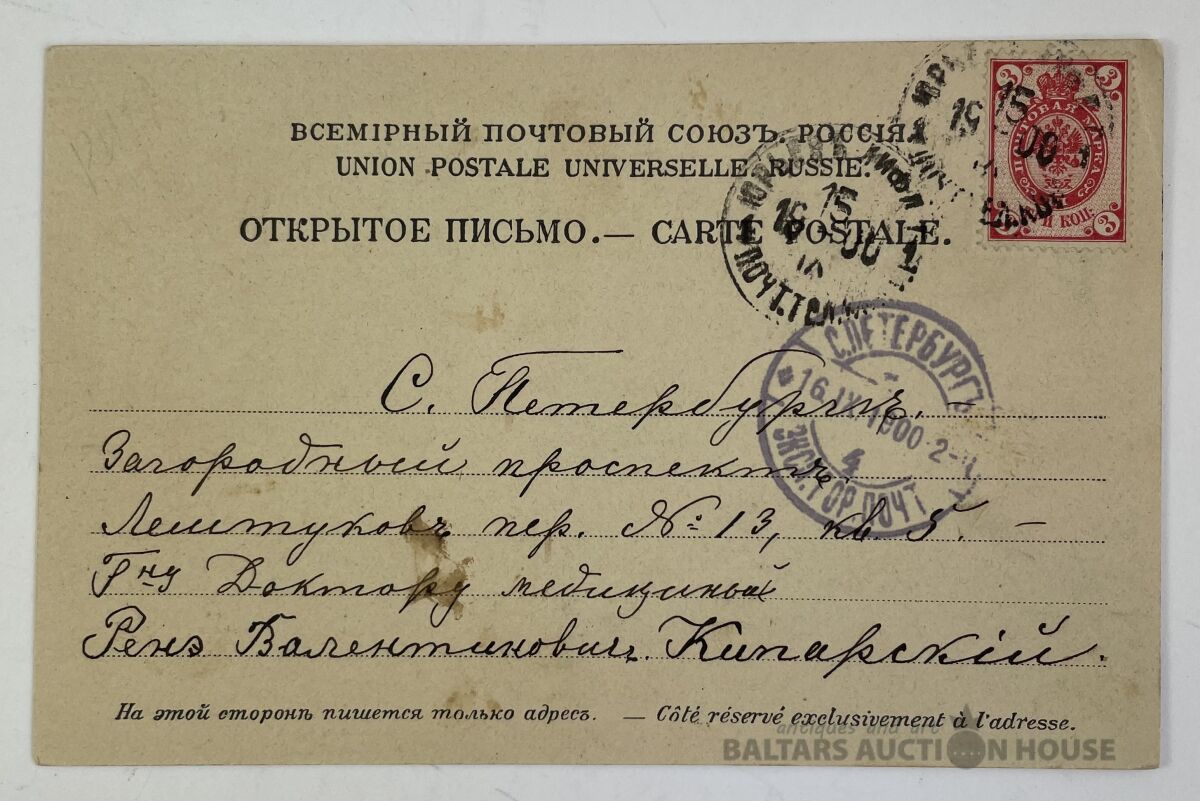 ВСЕМІРНЫЙ ПОЧТОВЫЙ СОЮЗЪ. РОССІЯ.
UNION POSTALE UNIVERSELLE. RUSSIE.
ОТКРЫТОЕ ПИСЬМО. — CARTE POSTALE.
3 3
ПОЧТОВАЯ МАРКА
3 КОП. 3
ЮРЬЕВЪ ЛИФЛ
15
19 00
ПОЧТ. ТЕЛ.
15
19 00
С.ПЕТЕРБУРГЪ
16.IX.1900.2-
4
ЭКСП. ГОР. ПОЧТ
С. Петербургъ. —
Загородный проспектъ.
Лештуковъ пер. №: 13, кв 5. —
Гну Доктору медицины
Ренэ Валентиновичъ. Кипарскій.
На этой сторонѣ пишется только адресъ. — Côté réservé exclusivement à l'adresse.
antiques and art
BALTARS AUCTION HOUSE